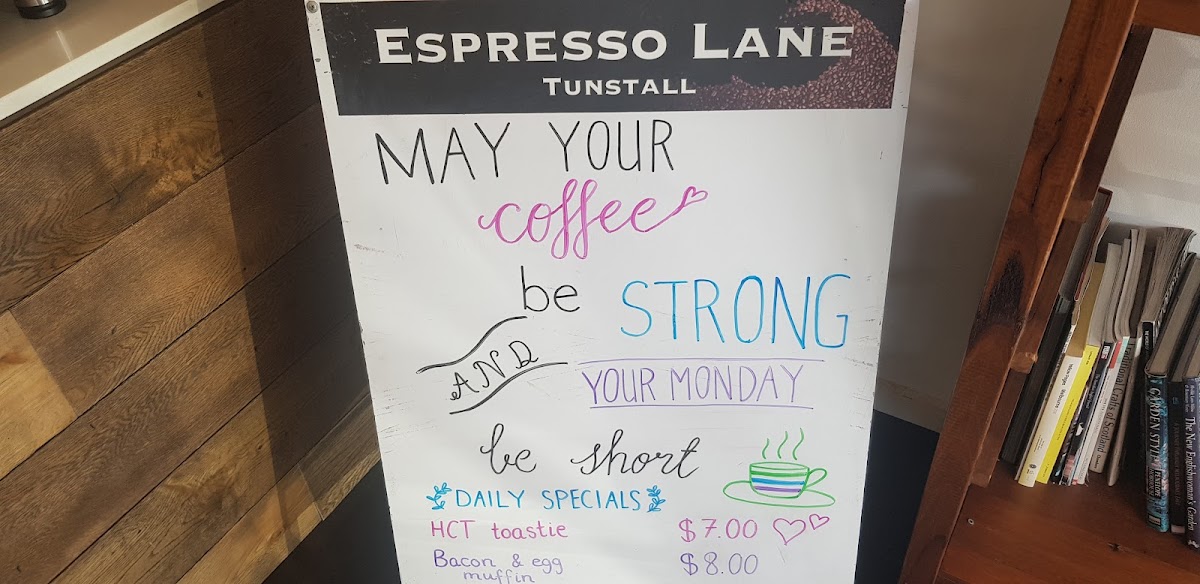 ESPRESSO LANE
TUNSTALL
MAY YOUR
coffee
be STRONG
AND
YOUR MONDAY
be short
DAILY SPECIALS
HCT toastie $7.00
Bacon & egg $8.00
muffin
Traditional Tales of Scotland
GARDEN STYLE
The New Englishwoman's Garden